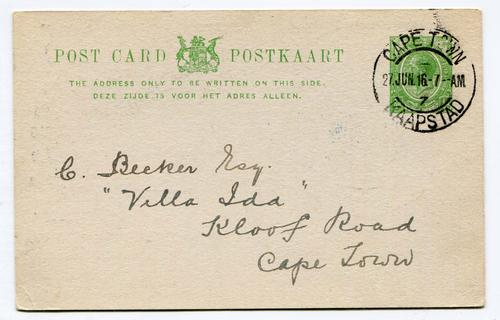 POST CARD POSTKAART
THE ADDRESS ONLY TO BE WRITTEN ON THIS SIDE.
DEZE ZIJDE IS VOOR HET ADRES ALLEEN.
CAPE TOWN
27 JUN 16-7-AM
7
KAAPSTAD
C. Becker Esq.
"Villa Ida"
Kloof Road
Cape Town